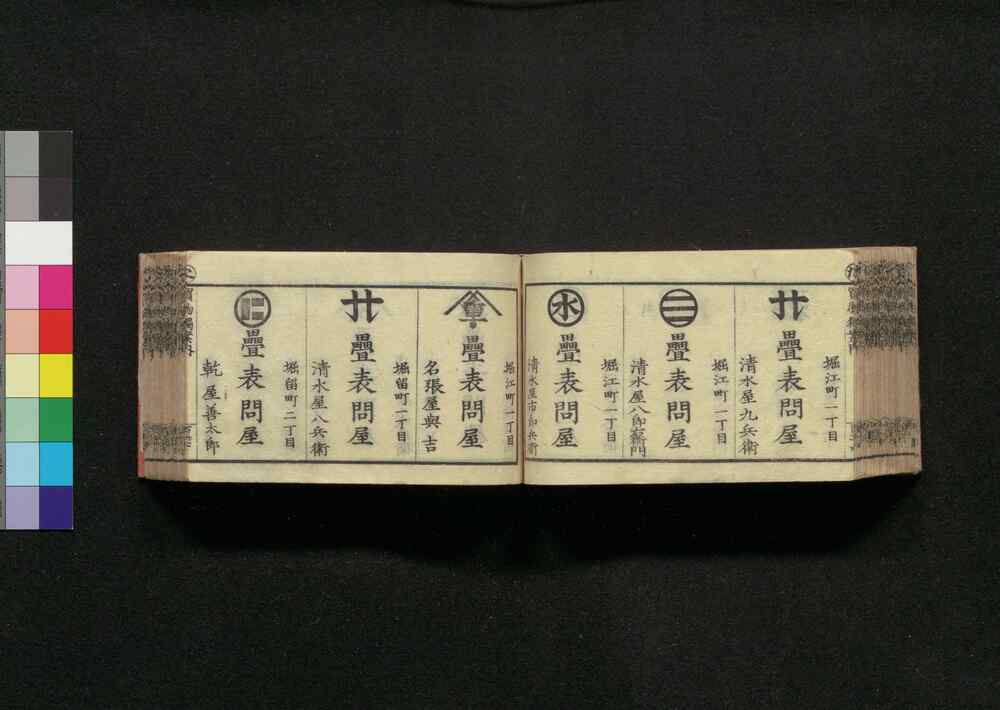 堀江町一丁目
卄 疊表問屋
清水屋九兵衛
堀江町一丁目
三 疊表問屋
清水屋八郎兵衛門
堀江町一丁目
水 疊表問屋
清水屋市郎兵衛
堀江町一丁目
重 疊表問屋
名張屋與吉
堀留町一丁目
卄 疊表問屋
清水屋八兵衛
堀留町二丁目
疊表問屋
乾屋善太郎